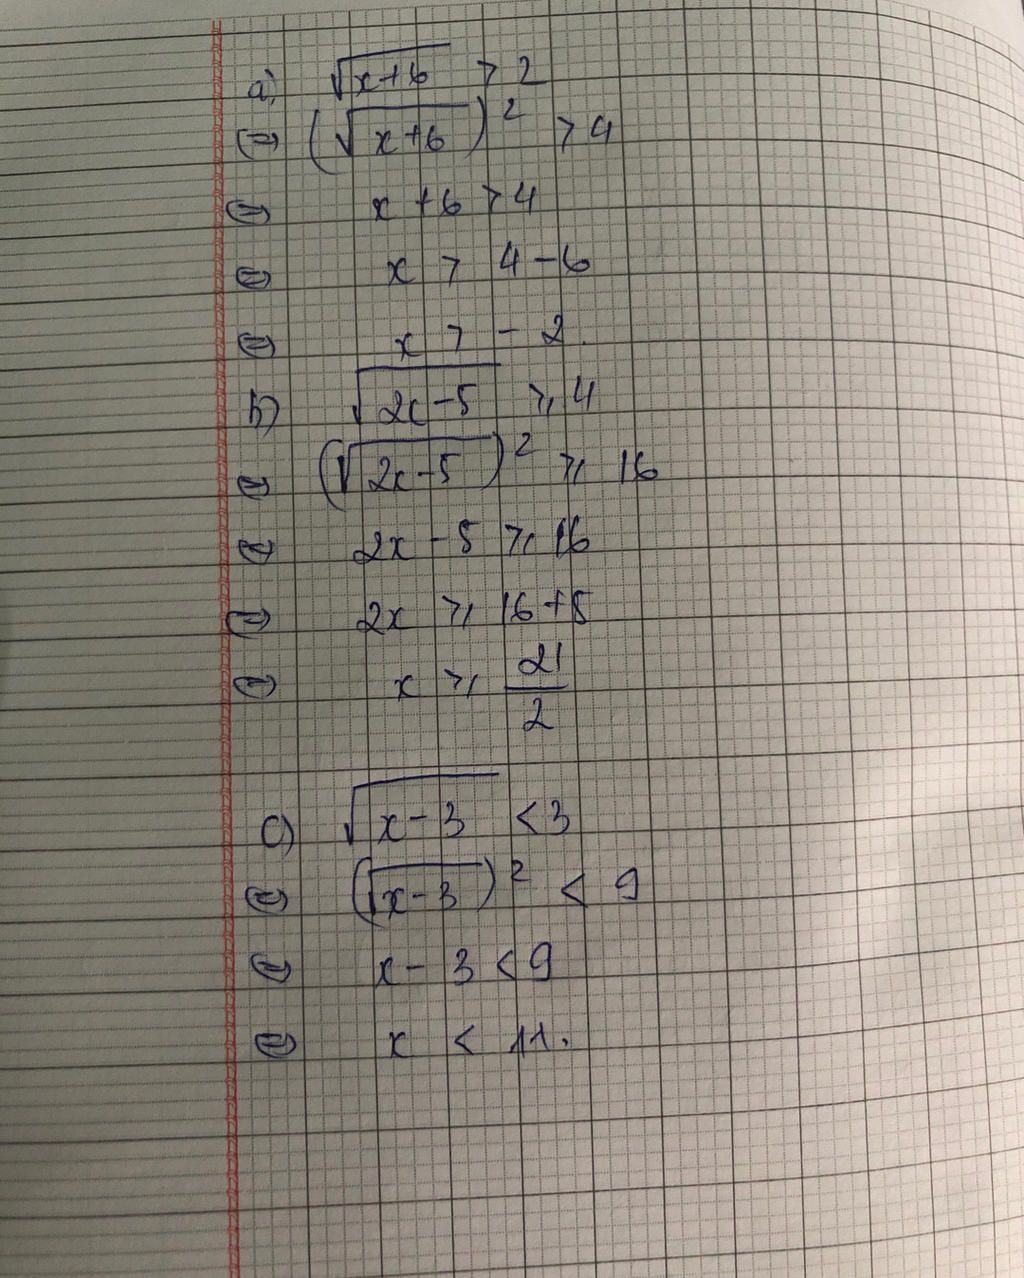 a) √(x+6) > 2
⇔ (√(x+6))² > 4
⇔ x+6 > 4
⇔ x > 4-6
⇔ x > -2.
b) √(2x-5) ⩾ 4
⇔ (√(2x-5))² ⩾ 16
⇔ 2x-5 ⩾ 16
⇔ 2x ⩾ 16+5
⇔ x ⩾ 21/2
c) √(x-3) < 3
⇔ (√(x-3))² < 9
⇔ x-3 < 9
⇔ x < 11.